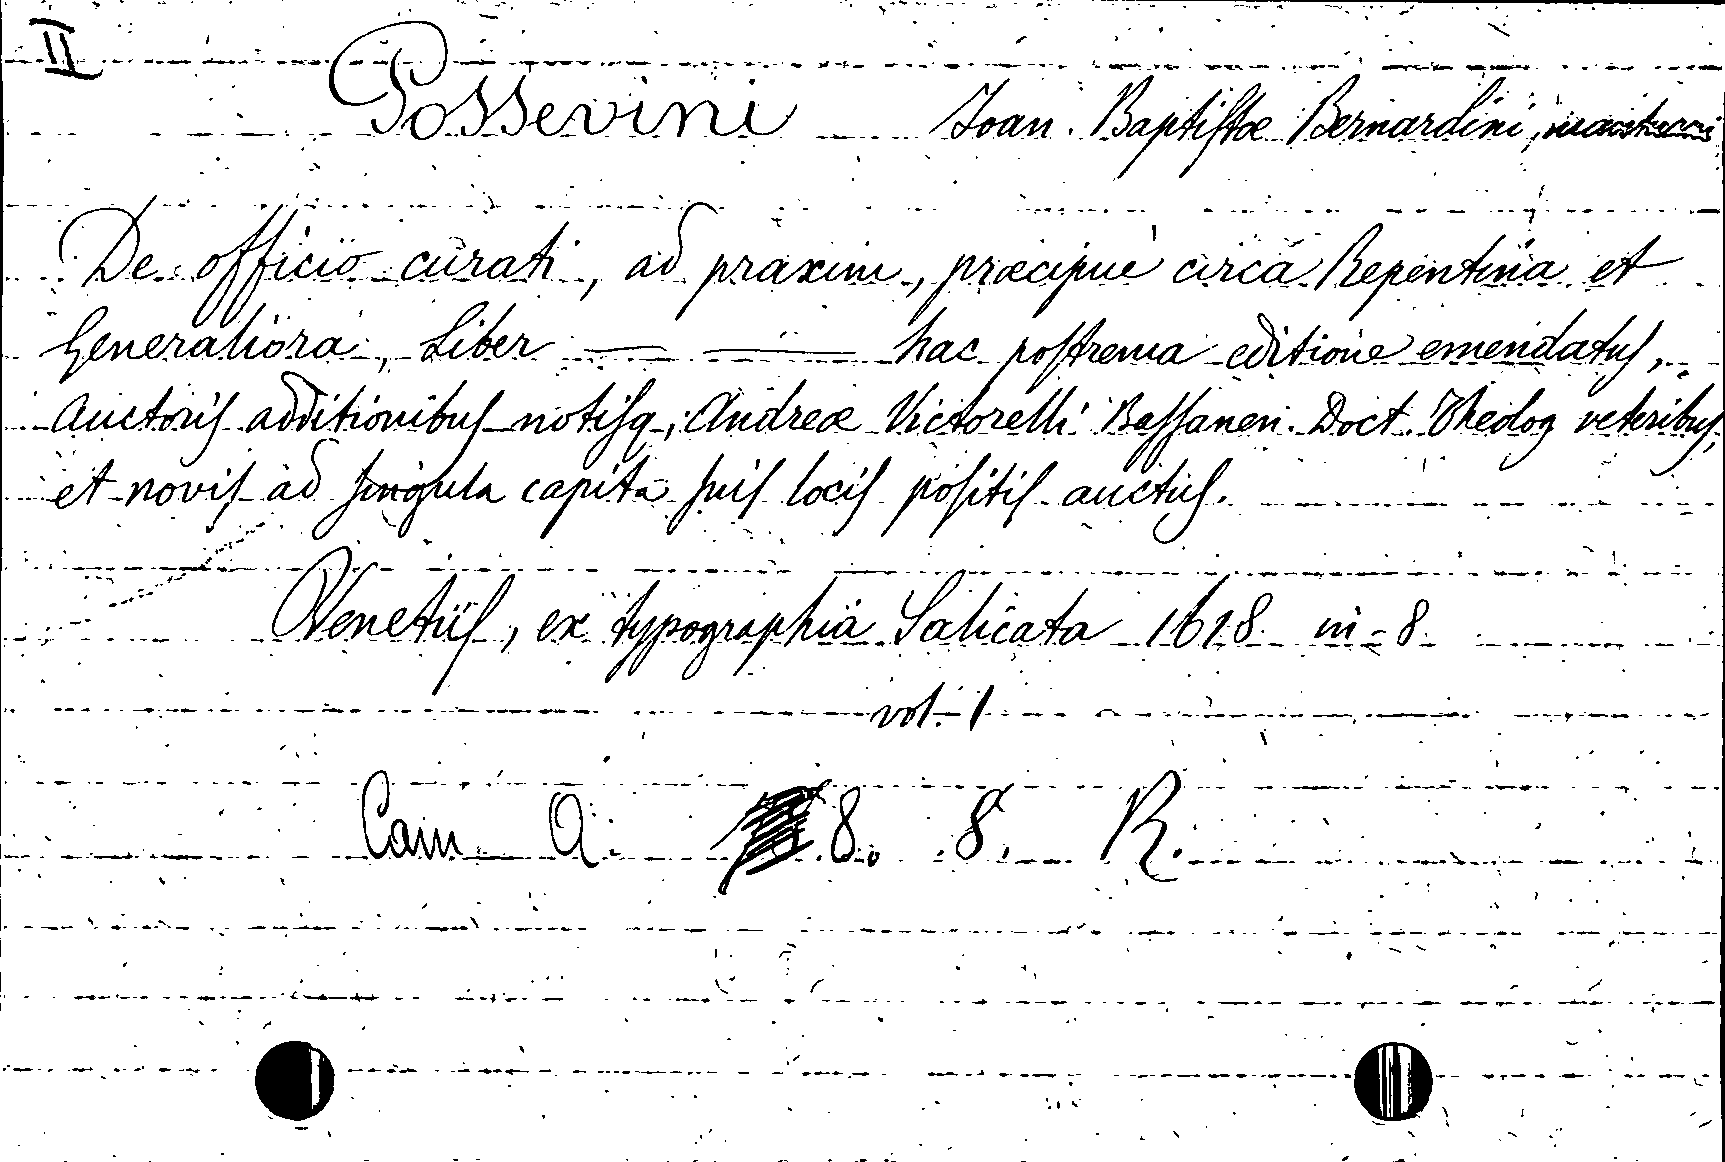 II
Possevini Joan. Baptiſtæ Bernardini,
De officio curati, ad praxim, præcipuè circa Repentina et
Generaliora, Liber —— —— hac poſtrema editione emendatuſ,
auctoriſ additionibuſ notiſq; Andreæ Victorelli Baſſanen. Doct. Theolog veteribuſ,
et noviſ ad ſingula capita ſuiſ lociſ poſitiſ auctuſ.
Venetiiſ, ex typographia Salicata 1618 in-8
vol. 1
Cam A. 8. 8. R.